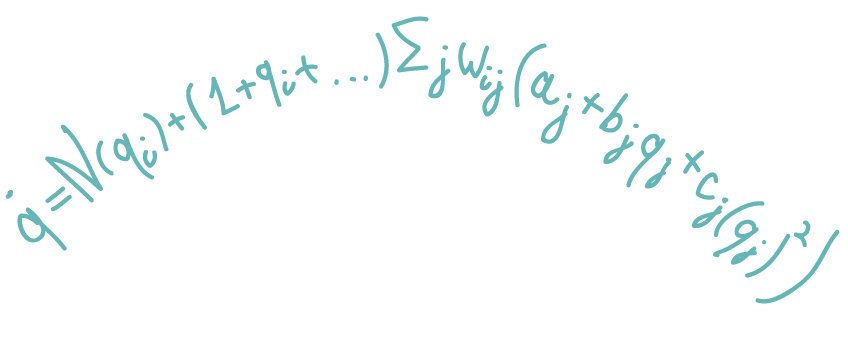 q̇=N(qᵢ)+(1+qᵢ+...)∑ⱼWᵢⱼ(aⱼ+bⱼqⱼ+cⱼ(qⱼ)²)